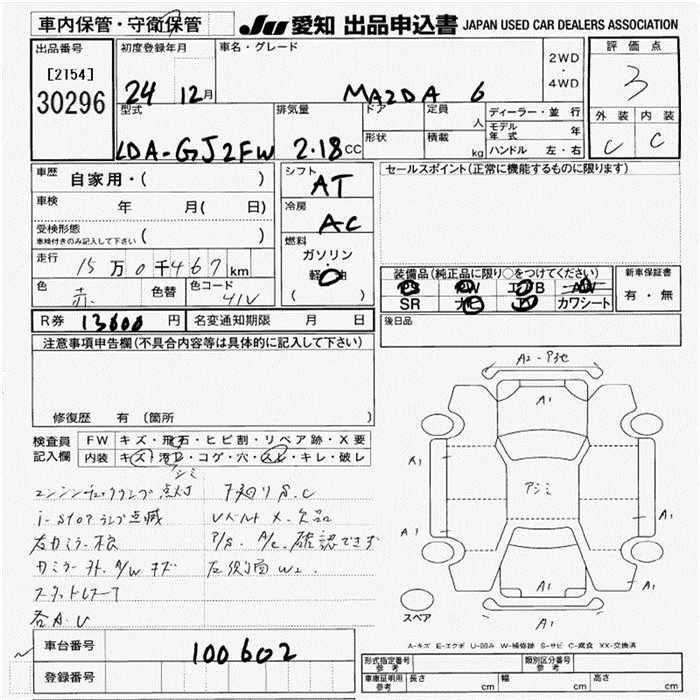 車内保管・守衛保管
JU 愛知 出品申込書 JAPAN USED CAR DEALERS ASSOCIATION
出品番号
[2154]
30296
初度登録年月
24 12月
車名・グレード
MAZDA 6
2WD
・
4WD
評価点
3
外装 内装
C C
型式
LDA-GJ2FW
排気量
2.18CC
ドア
定員
人
形状
積載
kg
ディーラー・並行
モデル年式 年
ハンドル 左・右
車歴
自家用・( )
車検
年 月( 日)
受検形態
車検付きのみ記入して下さい ( )
走行
15万0千467km
色
赤
色替
色コード
41V
シフト
AT
冷房
AC
燃料
ガソリン
・
軽油
( )
セールスポイント(正常に機能するものに限ります)
装備品(純正品に限り○をつけてください)
PS PW エアB AW
SR ナビ TV カワシート
新車保証書
有・無
R券 13600円
名変通知期限 月 日
後日品
注意事項申告欄(不具合内容等は具体的に記入して下さい)
修復歴 有 (箇所 )
検査員
記入欄
FW キズ・飛石・ヒビ割・リペア跡・X要
内装 キズ・汚れ・コゲ・穴・スレ・キレ・破レ
シミ
エンジンチェックランプ点灯
i-stopランプ点滅
右カミラー
カミラー キズ
スタッドレス
各A.U
下廻りS.C
欠品
P/S. A/C.確認できず
左側面W2.
A2-
A1
A1
A1
A1
A1
アシミ
A1
A1
A1
A1
スペア
A-キズ E-エクボ U-凹み W-補修跡 S-サビ C-腐食 XX-交換済
車台番号
100602
登録番号
形式指定番号
参考
類別区分番号
参考
車庫証明用
参考
長さ cm
幅 cm
高さ cm